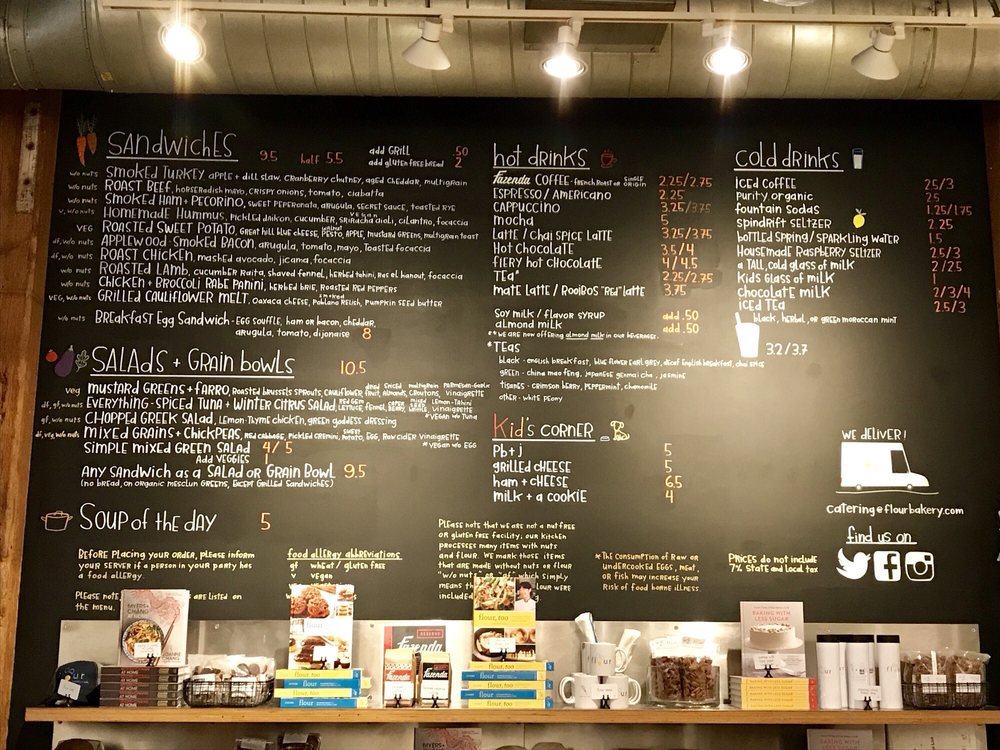 SANDWICHES 9.5 half 5.5
add GRILL .50
add gluten free bread 2
w/o nuts SMOKED TURKEY, apple + dill slaw, CRANBERRY chutney, aged cheddar, multigrain
w/o nuts ROAST BEEF, horseradish mayo, CRISPY onions, tomato, ciabatta
w/o nuts SMOKED HAM + PECORINO, sweet peperonata, arugula, secret sauce, toasted rye
v, w/o nuts HOMEMADE HUMMUS, pickled daikon, cucumber, vegan sriracha aioli, cilantro, focaccia
VEG ROASTED SWEET POTATO, great hill blue cheese, walnut pesto, apple, mustard greens, multigrain toast
df, w/o nuts APPLEWOOD-SMOKED BACON, arugula, tomato, mayo, toasted focaccia
df, w/o nuts ROAST CHICKEN, mashed avocado, jicama, focaccia
w/o nuts ROASTED LAMB, cucumber raita, shaved fennel, herbed tahini, ras el hanout, focaccia
w/o nuts CHICKEN + BROCCOLI RABE PANINI, herbed brie, roasted red peppers
VEG, w/o nuts GRILLED CAULIFLOWER MELT, oaxaca cheese, smoked poblano relish, pumpkin seed butter
w/o nuts BREAKFAST EGG SANDWICH - EGG SOUFFLE, ham or bacon, cheddar,
arugula, tomato, dijonaise 8
SALADS + GRAIN BOWLS 10.5
veg MUSTARD GREENS + FARRO, Roasted brussels sprouts, cauliflower, dried fruit, spiced almonds, multigrain croutons, parmesan-garlic vinaigrette
df, gf, w/o nuts EVERYTHING-SPICED TUNA + WINTER CITRUS SALAD, red gem lettuce, fennel, caper berry, mixed olives, lemon-tahini vinaigrette
*vegan w/o tuna
gf, w/o nuts CHOPPED GREEK SALAD, lemon-thyme chicken, green goddess dressing
df, veg, w/o nuts MIXED GRAINS + CHICKPEAS, red cabbage, pickled cremini, sweet potato, egg, raw cider vinaigrette
*vegan w/o egg
SIMPLE MIXED GREEN SALAD 4/5
Add VEGGIES 1
ANY SANDWICH as a SALAD or GRAIN BOWL 9.5
(no bread, on organic mesclun greens, except grilled sandwiches)
SOUP of the DAY 5
BEFORE PLACING YOUR ORDER, PLEASE INFORM
YOUR SERVER IF A PERSON IN YOUR PARTY HAS
A FOOD ALLERGY.
PLEASE NOTE, ARE LISTED ON
THE MENU.
food allergy abbreviations
gf wheat / gluten free
v vegan
hot drinks
Fazenda COFFEE - french roast or single origin 2.25/2.75
ESPRESSO / AMERICANO 2.25
CAPPUCCINO 3.25/3.75
mocha 5
LATTE / CHAI SPICE LATTE 3.25/3.75
HOT CHOCOLATE 3.5/4
FIERY HOT CHOCOLATE 4/4.5
TEA* 2.25/2.75
MATE LATTE / ROOIBOS "RED" LATTE 3.75
SOY MILK / FLAVOR SYRUP add .50
almond milk add .50
**we are now offering almond milk in our beverages.
*TEAS
black - english breakfast, blue flower earl grey, decaf english breakfast, chai spice
green - china mao feng, japanese genmai cha, jasmine
tisanes - crimson berry, peppermint, chamomile
other - white peony
Kid's CORNER
Pb + j 5
grilled cheese 5
ham + cheese 6.5
milk + a cookie 4
PLEASE NOTE THAT WE ARE NOT A NUT FREE
OR GLUTEN FREE FACILITY; OUR KITCHEN
PROCESSES MANY ITEMS WITH NUTS
AND FLOUR. WE MARK THOSE ITEMS
THAT ARE MADE WITHOUT NUTS OR FLOUR
which simply
means
included
*THE CONSUMPTION OF RAW OR
UNDERCOOKED EGGS, MEAT,
OR FISH MAY INCREASE YOUR
RISK OF FOOD BORNE ILLNESS.
cold drinks
iced coffee 2.5/3
purity organic 2.5
fountain sodas 1.25/1.75
spindrift seltzer 2.25
bottled spring/sparkling water 1.5
housemade raspberry seltzer 2.5/3
a tall, cold glass of milk 2/2.5
kid's glass of milk 1
chocolate milk 2/3/4
iced tea 2.5/3
black, herbal, or green moroccan mint
3.2/3.7
WE DELIVER!
catering@flourbakery.com
find us on
PRICES do not include
7% STATE and local tax
MYERS+
CHANG
AT HOME
flour
flour, too
flour, too
Fazenda
Fazenda
flour
BAKING WITH
LESS SUGAR
BAKING WITH LESS SUGAR